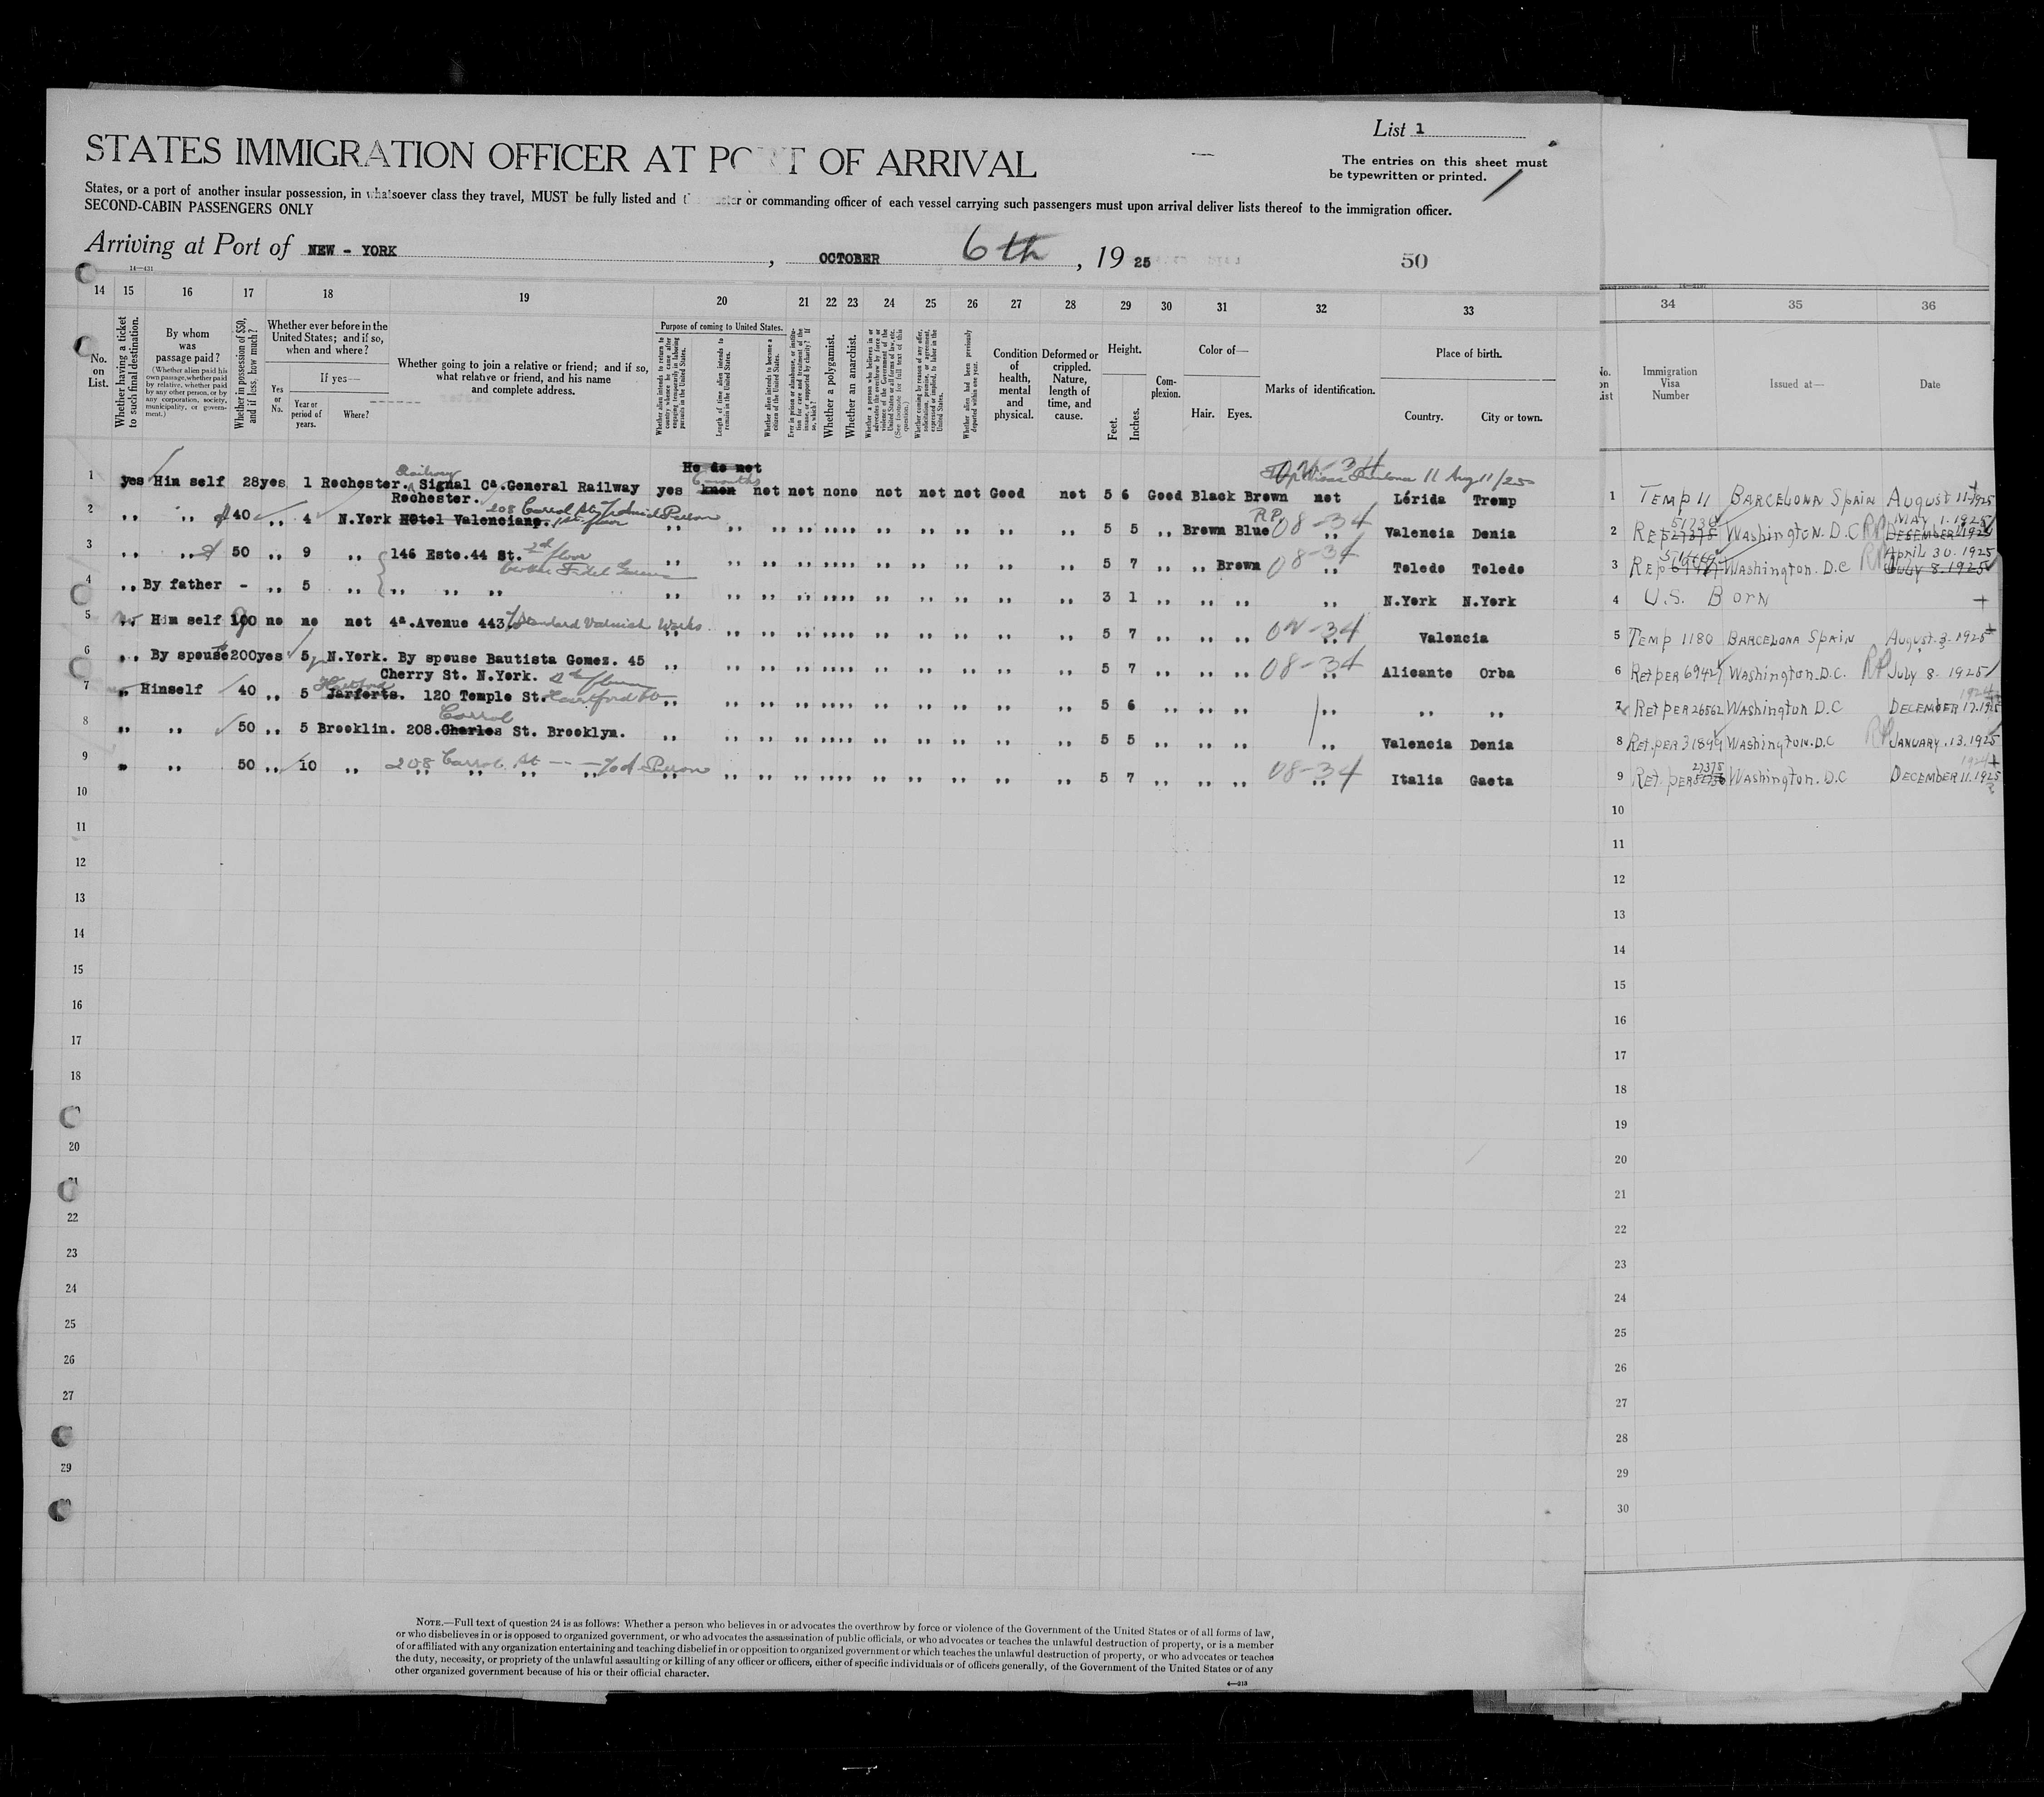 List 1
STATES IMMIGRATION OFFICER AT PORT OF ARRIVAL
The entries on this sheet must
be typewritten or printed.
States, or a port of another insular possession, in whatsoever class they travel, MUST be fully listed and the master or commanding officer of each vessel carrying such passengers must upon arrival deliver lists thereof to the immigration officer.
SECOND-CABIN PASSENGERS ONLY
Arriving at Port of NEW - YORK , OCTOBER 6th , 19 25 50
14—431
14 15 16 17 18 19 20 21 22 23 24 25 26 27 28 29 30 31 32 33 34 35 36
No. on List.
Whether having a ticket to such final destination.
By whom was passage paid?
(Whether alien paid his own passage, whether paid by relative, whether paid by any other person, or by any corporation, society, municipality, or government.)
Whether in possession of $50, and if less, how much?
Whether ever before in the United States; and if so, when and where?
If yes—
Yes or No.
Year or period of years.
Where?
Whether going to join a relative or friend; and if so, what relative or friend, and his name and complete address.
Purpose of coming to United States.
Whether alien intends to return to country whence he came after engaging temporarily in laboring pursuits in the United States.
Length of time alien intends to remain in the United States.
Whether alien intends to become a citizen of the United States.
Ever in prison or almshouse, or institution for care and treatment of the insane, or supported by charity? If so, which?
Whether a polygamist.
Whether an anarchist.
Whether a person who believes in or advocates the overthrow by force or violence of the Government of the United States or all forms of law, etc. (See footnote for full text of this question.)
Whether coming by reason of any offer, solicitation, promise, or agreement, expressed or implied, to labor in the United States.
Whether alien had been previously deported within one year.
Condition of health, mental and physical.
Deformed or crippled. Nature, length of time, and cause.
Height.
Feet. Inches.
Complexion.
Color of—
Hair. Eyes.
Marks of identification.
Place of birth.
Country. City or town.
No. on List
Immigration Visa Number
Issued at—
Date
He do not
1 yes Him self 28 yes 1 Rochester. Railway Signal Cª. General Railway yes knon 6 months not not none not not not Good not 5 6 Good Black Brown not Lérida Tremp 1 TEMP 11 BARCELONA SPAIN AUGUST 11-1925
Rochester.
2 ,, ,, $40 ,, 4 N.York Hotel Valenciano. 208 Carrol St 1st floor ,, ,, ,, ,, ,,,, ,, ,, ,, ,, ,, 5 5 ,, Brown Blue RP 08-34 ,, Valencia Denia 2 REP 27375 51736 Washington. D.C RP DESEMBER MAY 1. 1925
3 ,, ,, 50 ,, 9 ,, 146 Este.44 St. 2d floor ,, ,, ,, ,, ,,,, ,, ,, ,, ,, ,, 5 7 ,, ,, Brown 08-34 ,, Toledo Toledo 3 REP Washington. D.C RP JULY 8. 1925 April 30. 1925
4 ,, By father - ,, 5 ,, ,, ,, ,, ,, ,, ,, ,, ,,,, ,, ,, ,, ,, ,, 3 1 ,, ,, ,, ,, N.York N.York 4 U.S. BORN
5 no ,, Him self 100 no no not 4ª.Avenue 443 Standard Varnish Works ,, ,, ,, ,, ,,,, ,, ,, ,, ,, ,, 5 7 ,, ,, ,, ON-34 ,, Valencia 5 TEMP 1180 BARCELONA SPAIN August. 3. 1925
6 ,, By spouse 200 yes 5 N.York. By spouse Bautista Gomez. 45 ,, ,, ,, ,, ,,,, ,, ,, ,, ,, ,, 5 7 ,, ,, ,, 08-34 ,, Alicante Orba 6 Ret PER 69424 Washington. D.C. RP July 8. 1925
Cherry St. N.York.
7 ,, Himself 40 ,, 5 Jarforts. Hartford 120 Temple St. Hartford ,, ,, ,, ,, ,,,, ,, ,, ,, ,, ,, 5 6 ,, ,, ,, ,, ,, ,, 7 Ret PER 26562 Washington D.C DECEMBER 17. 1925 1924
8 ,, ,, 50 ,, 5 Brooklin. 208. Charles Carrol St. Brooklyn. ,, ,, ,, ,, ,,,, ,, ,, ,, ,, ,, 5 5 ,, ,, ,, ,, Valencia Denia 8 Ret. per 31899 Washington. D.C RP JANUARY. 13. 1925
9 ,, ,, 50 ,, 10 ,, 208 Carrol St ,, ,, ,, ,, ,, ,, ,, ,, ,,,, ,, ,, ,, ,, ,, 5 7 ,, ,, ,, 08-34 ,, Italia Gaeta 9 Ret. PER 51736 27375 Washington. D.C DECEMBER 11. 1925 1924
10 10
11 11
12 12
13 13
14 14
15 15
16 16
17 17
18 18
19
20 20
21 21
22 22
23 23
24 24
25 25
26 26
27 27
28
29 29
30
NOTE.—Full text of question 24 is as follows: Whether a person who believes in or advocates the overthrow by force or violence of the Government of the United States or of all forms of law,
or who disbelieves in or is opposed to organized government, or who advocates the assassination of public officials, or who advocates or teaches the unlawful destruction of property, or is a member
of or affiliated with any organization entertaining and teaching disbelief in or opposition to organized government or which teaches the unlawful destruction of property, or who advocates or teaches
the duty, necessity, or propriety of the unlawful assaulting or killing of any officer or officers, either of specific individuals or of officers generally, of the Government of the United States or of any
other organized government because of his or their official character.